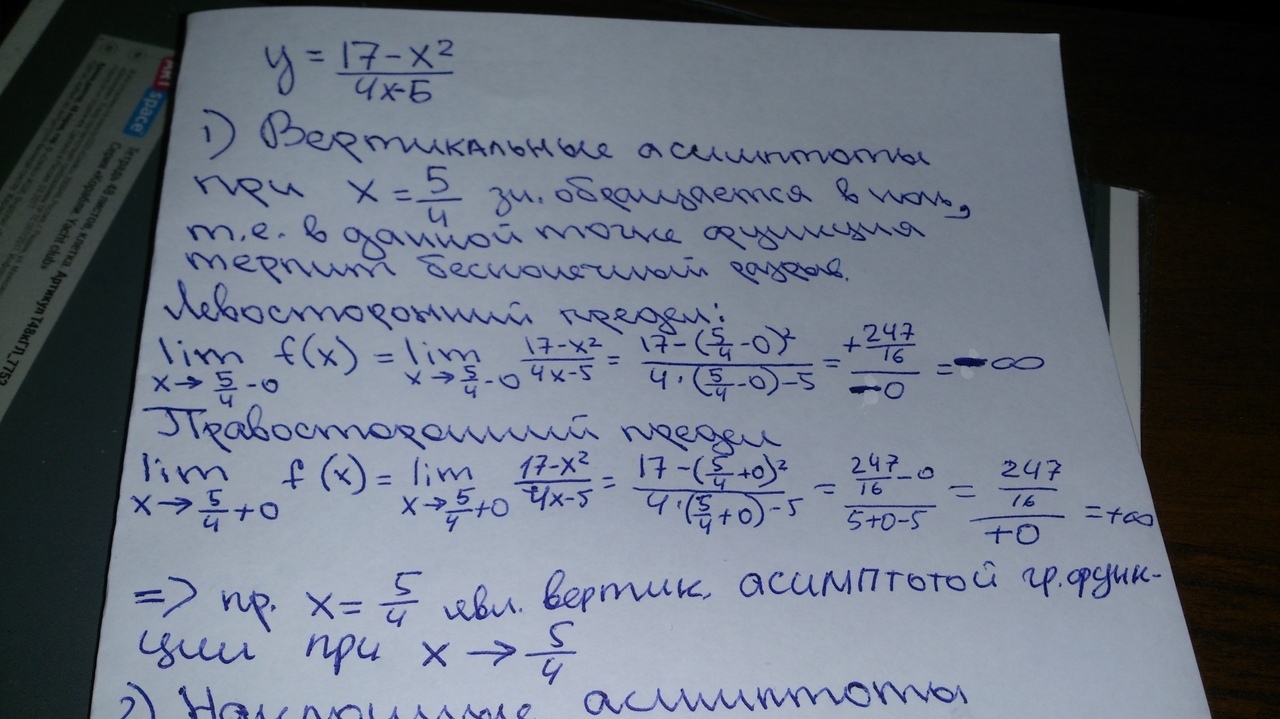 y = (17-x²)/(4x-5)
1) Вертикальные асимптоты
при x = 5/4 зн. обращается в ноль,
т.е. в данной точке функция
терпит бесконечный разрыв.
Левосторонний предел:
lim x→5/4-0 f(x) = lim x→5/4-0 (17-x²)/(4x-5) = (17-(5/4-0)²)/(4·(5/4-0)-5) = (+247/16)/(-0) = -∞
Правосторонний предел
lim x→5/4+0 f(x) = lim x→5/4+0 (17-x²)/(4x-5) = (17-(5/4+0)²)/(4·(5/4+0)-5) = (247/16-0)/(5+0-5) = (247/16)/(+0) = +∞
=> пр. x = 5/4 явл. вертик. асимптотой гр. функ-
ции при x → 5/4
2) Наклонные асимптоты
Art
space
Тетрадь 48 листов, клетка Артикул Т48кГЛ_7752
Серия «Корабли. Yacht club»